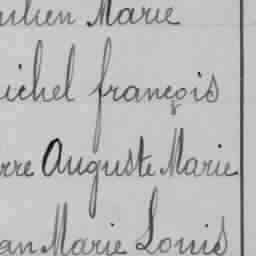 ulien Marie
ichel françois
rre Auguste Marie
an Marie Louis